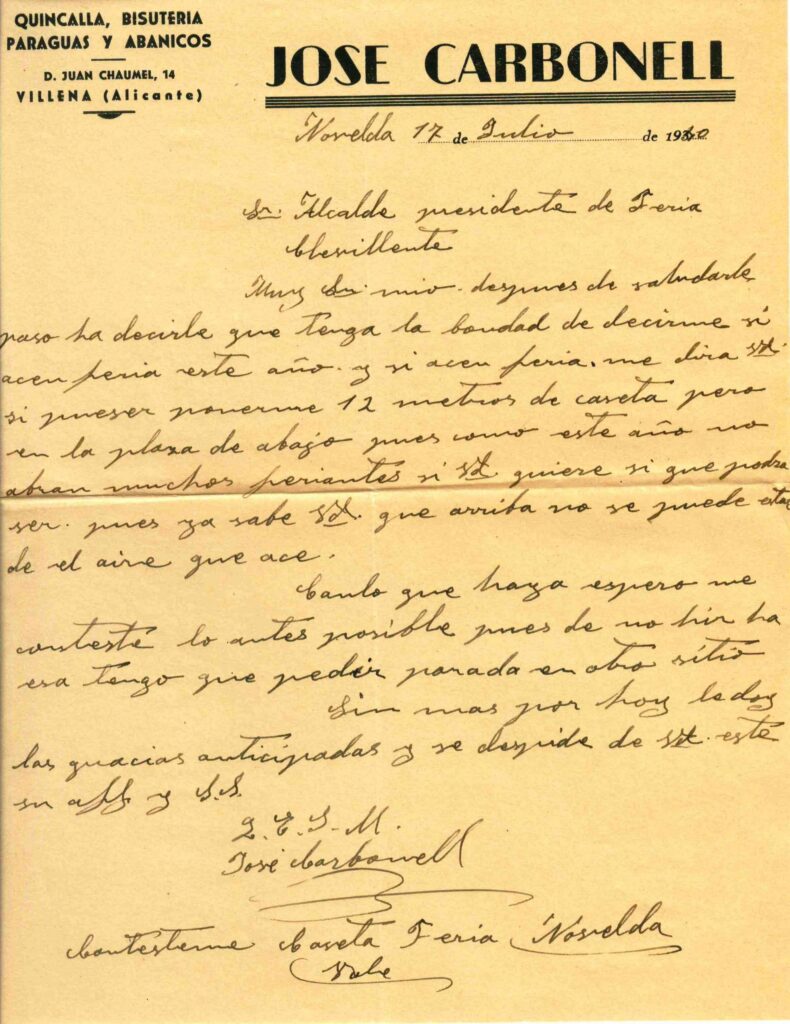 QUINCALLA, BISUTERIA
PARAGUAS Y ABANICOS
D. JUAN CHAUMEL, 14
VILLENA (Alicante)
JOSE CARBONELL
Novelda 17 de Julio de 1940
Sr. Alcalde presidente de Feria
Clevillente
Muy Sr. mio. despues de saludarle
paso ha decirle que tenga la bondad de decirme si
acen feria este año. y si acen feria. me dira Vd.
si pueser ponerme 12 metros de caseta pero
en la plaza de abajo pues como este año no
abran muchos feriantes si Vd. quiere si que podra
ser. pues ya sabe Vd. que arriba no se puede estar
de el aire que ace.
Canlo que haya espero me
contesté lo antes posible pues de no hir ha
esa tengo que pedir parada en otro sitio
Sin mas por hoy le doy
las gracias anticipadas y se despide de Vd. este
su aff y S.S.
Q.E.S.M.
José Carbonell
Contesteme Caseta Feria Novelda
Vale